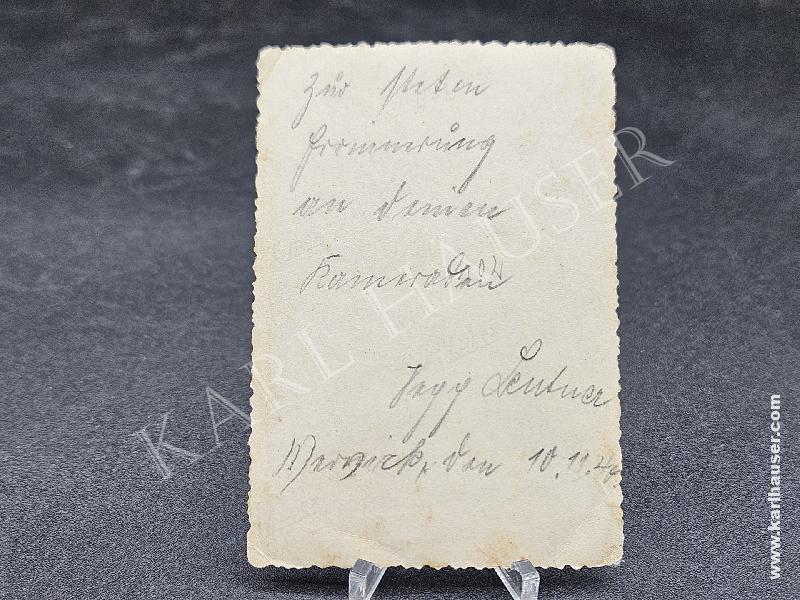 Zur steten
Erinnerung
an deinen
Kameraden
Sepp Lentner
Mervick, den 10.11.40
KARL HAUSER
www.karlhauser.com